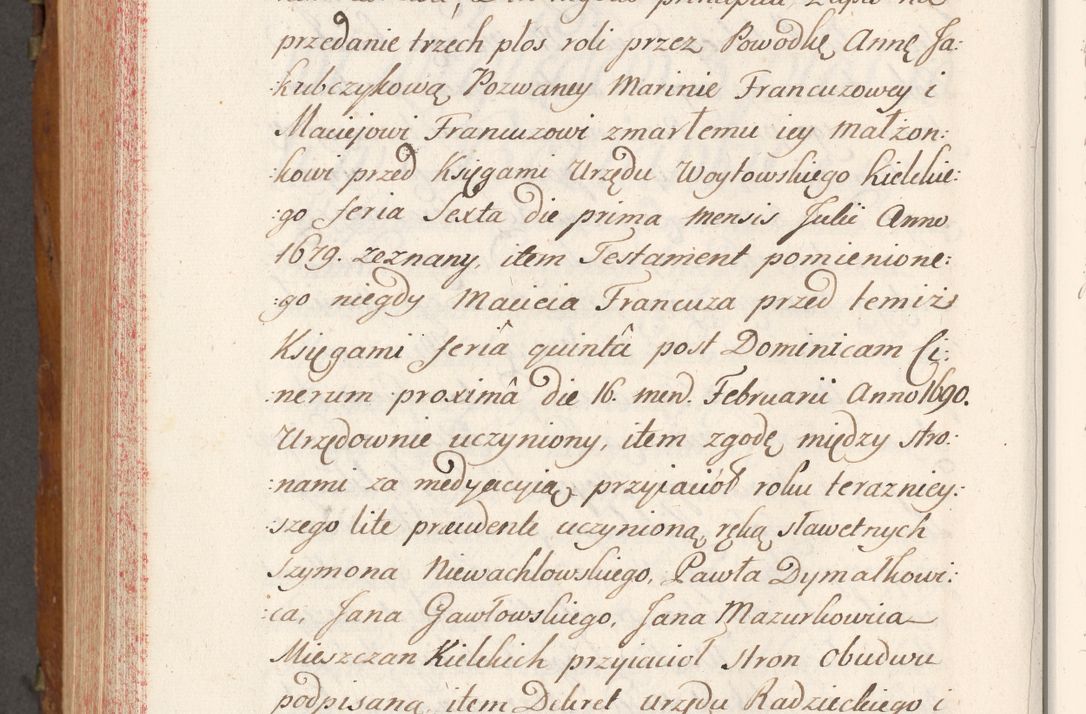 przedanie trzech płos roli przez Powodkę Annę Ja:
:kubczykową Pozwaney Marinie Francuzowey i
Maciejowi Francuzowi zmarłemu iey małzon:
:kowi przed Księgami Urzędu Woytowskiego kielckie:
:go feria Sexta die prima Mensis Julii Anno
1679. zeznany, item Testament pomienione:
:go niegdy Macieia Francuza przed temiż
Księgami feriâ quintâ post Dominicam Ci:
:nerum proximâ die 16. men. Februarii Anno 1690.
Urzędownie uczyniony, item zgodę między stro:
:nami za medyacyią przyiaciół roku terazniey:
:szego lite pendente uczynioną, ręką sławetnych
Szymona Niewachlowskiego, Pawła Dymalkowi:
:ca, Jana Gawłowskiego, Jana Mazurkowica
Mieszczan Kielckich przyiacioł stron obudwu
podpisaną, item Dekret urzędu Radzieckiego i